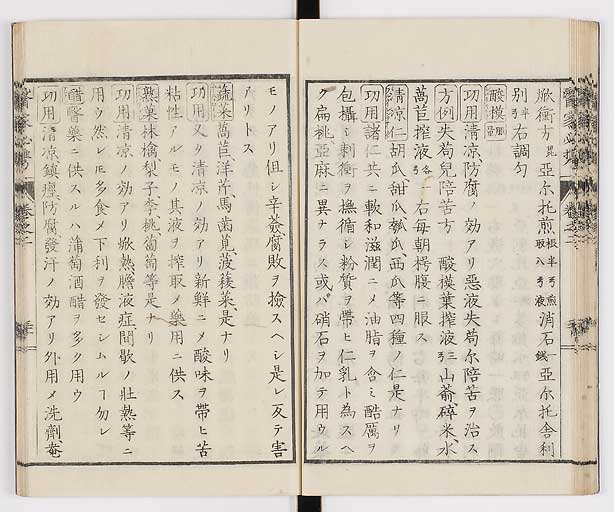 焮衝方 昆 亜尓托煎 根半ヲ煎取八ヲ液 消石 銭一 亜尓托舎利
別 半ヲ 右調勺
酸模 葉那
功用清凉防腐ノ効アリ悪液失苟尓陪苦ヲ治ス
方例失苟児陪苦方 酸模葉搾液 山葵碎米氷
萵苣搾液 各 右毎朝楞腹ニ服ス
清凉仁胡瓜甜瓜瓠瓜西瓜等四種ノ仁是ナリ
功用諸仁共ニ軟和滋潤ニメ油脂ヲ含ミ酷厲ヲ
包攝シ刺衝ヲ撫循シ粉質ヲ帯ヒ仁乳ト為スヘ
ク扁桃亜麻ニ異ナラス或バ硝石ヲ加テ用ウル
モノアリ但シ辛薟腐敗ヲ撿スヘシ是レ反テ害
アリトス
蔬菜萵苣洋芹馬歯莧菠薐菜是ナリ
功用又タ清凉ノ効アリ新鮮ニメ酸味ヲ帯ヒ苦
粘性アルモノ其液ヲ搾取メ藥用ニ供ス
熟菓林檎梨子李桃葡萄等是ナリ
功用清凉ノ効アリ焮熱膽液症間歇ノ壮熱等ニ
用ウ然レ𪜈多食メ下利ヲ發セシムルヿ勿レ
醋醫藥ニ供スルハ蒲萄酒醋ヲ多ク用ウ
功用清凉鎮痙防腐發汗ノ効アリ外用メ洗劑菴